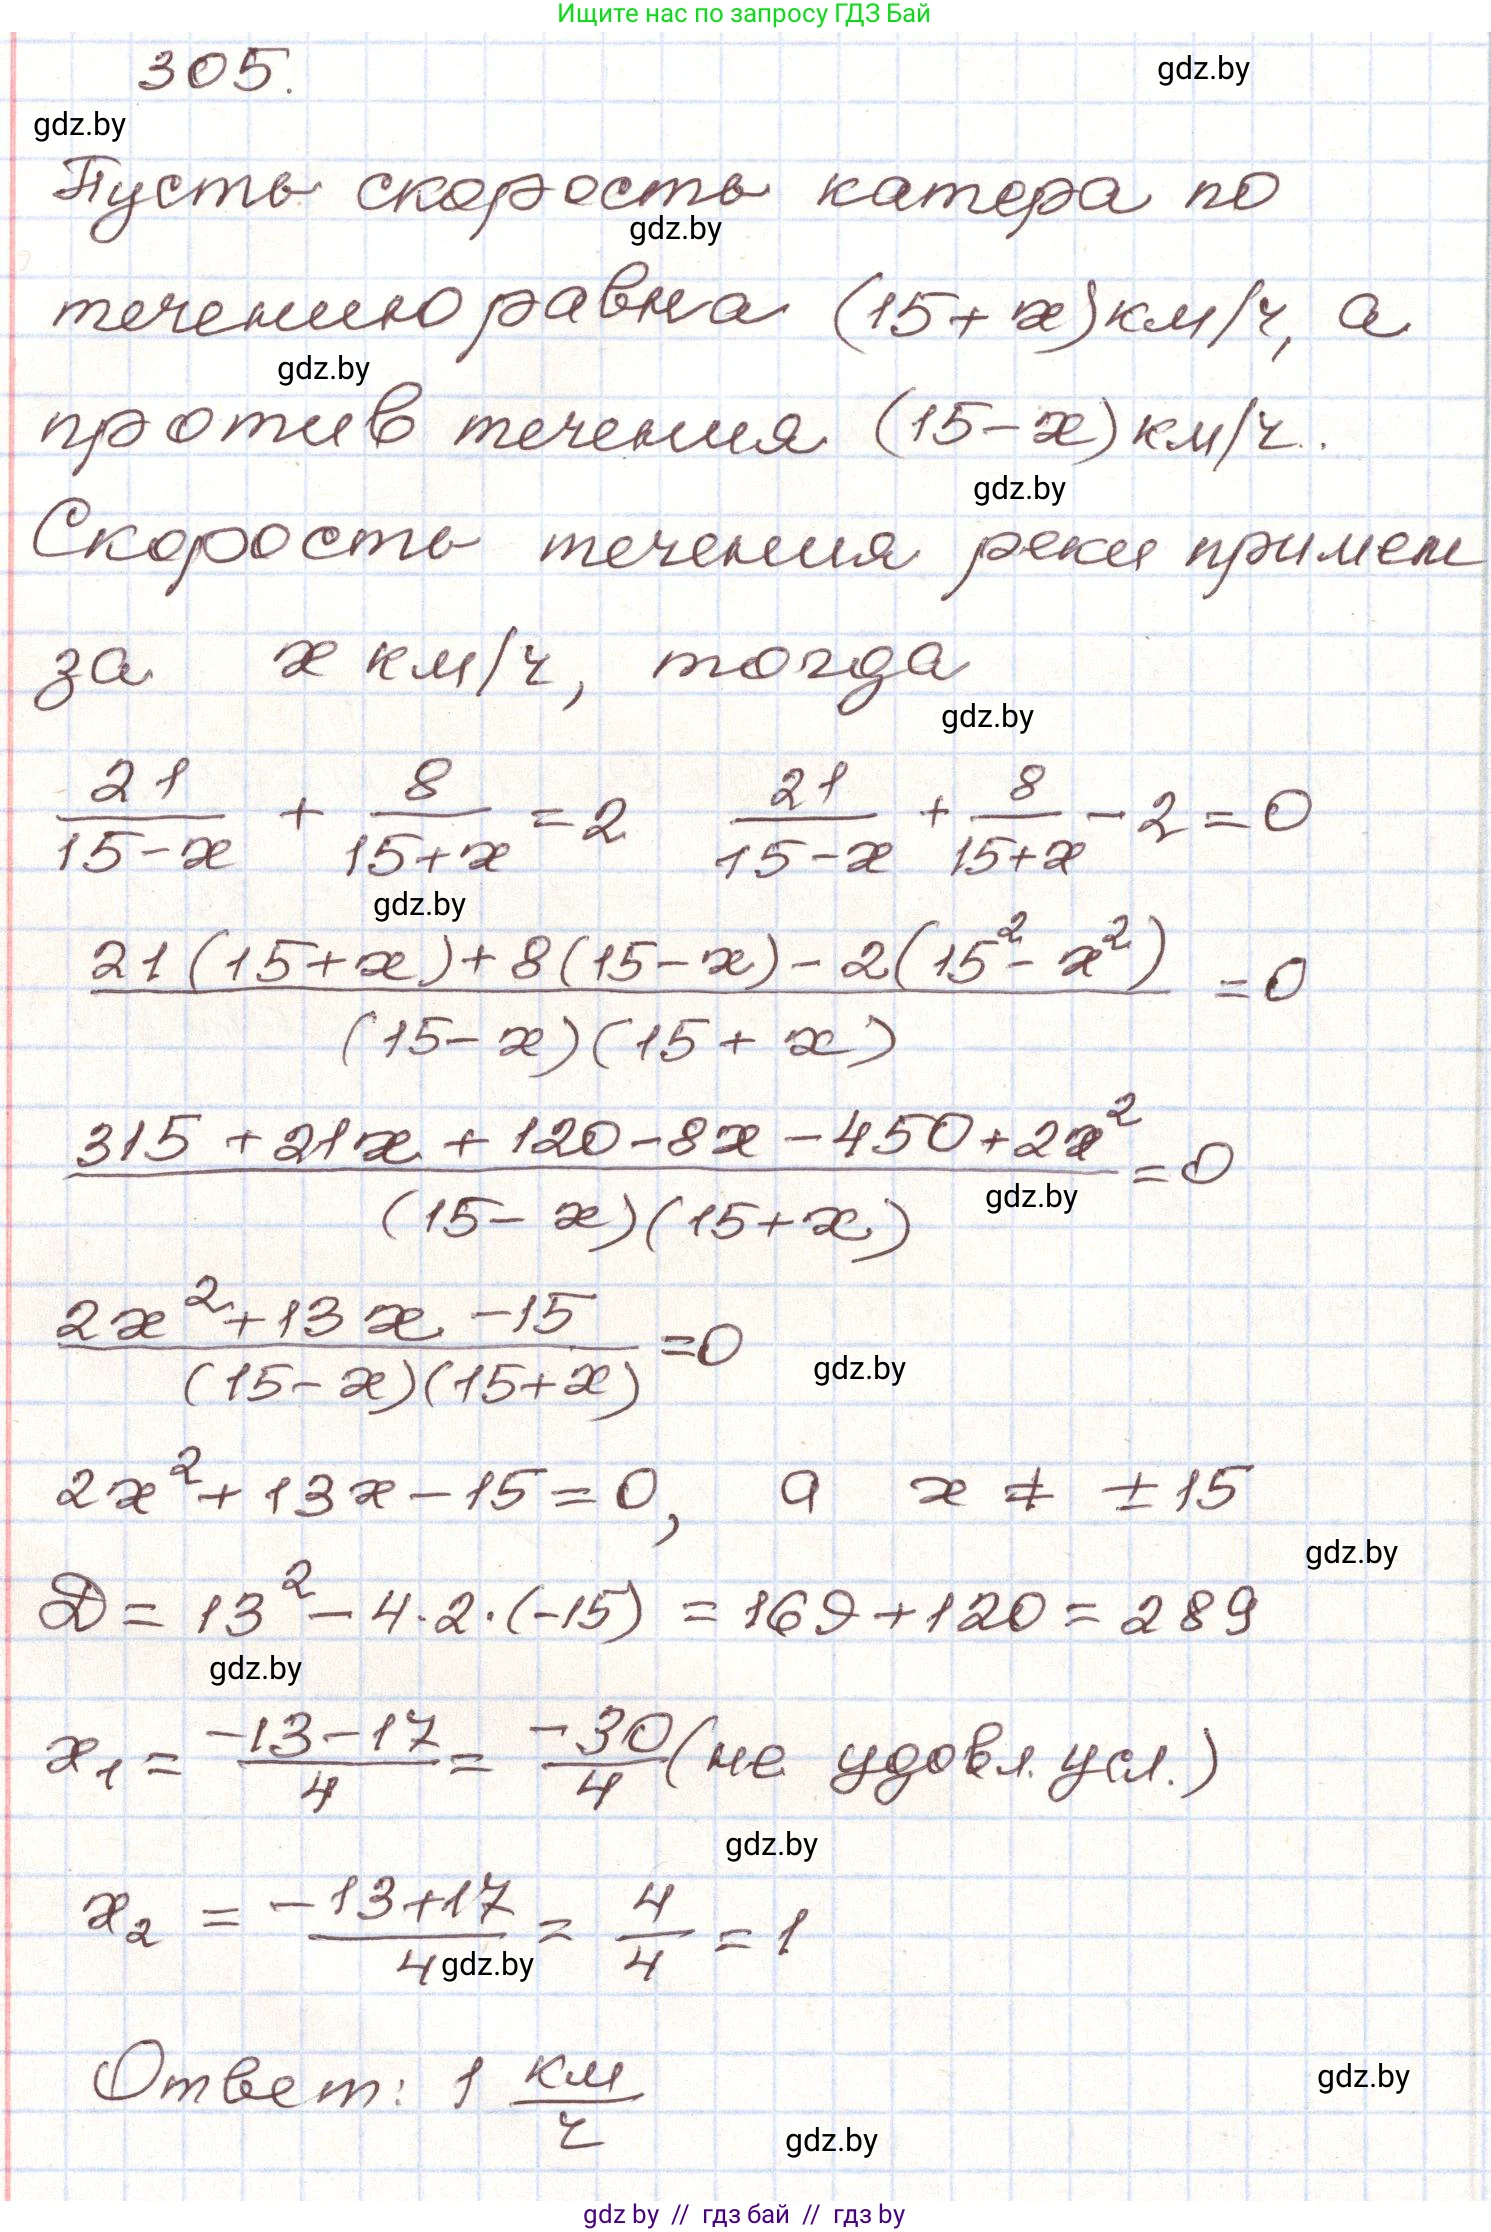 Ищите нас по запросу ГДЗ Бай
305.
gdz.by
gdz.by
Пусть скорость катера по
gdz.by
течению равна (15+x) км/ч, а
gdz.by
против течения (15-x) км/ч.
gdz.by
Скорость течения реки примем
за x км/ч, тогда
gdz.by
21/(15-x) + 8/(15+x) = 2   21/(15-x) + 8/(15+x) - 2 = 0
gdz.by
(21(15+x)+8(15-x)-2(15²-x²))/((15-x)(15+x)) = 0
(315+21x+120-8x-450+2x²)/((15-x)(15+x)) = 0
gdz.by
(2x²+13x-15)/((15-x)(15+x)) = 0
gdz.by
2x²+13x-15=0, а x ≠ ±15
gdz.by
D = 13² - 4·2·(-15) = 169+120 = 289
gdz.by
x₁ = (-13-17)/4 = -30/4 (не удовл. усл.)
gdz.by
x₂ = (-13+17)/4 = 4/4 = 1
gdz.by
Ответ: 1 км/ч
gdz.by
gdz.by
gdz by // гдз бай // гдз by